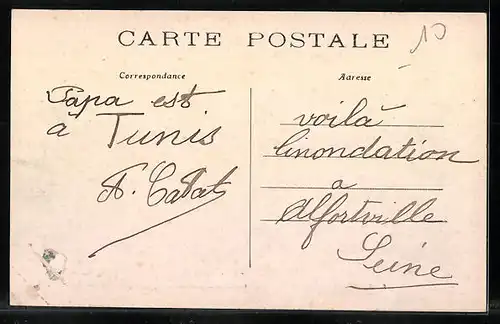 CARTE POSTALE
10
Correspondance
Adresse
Papa est
à Tunis
voilà
linondation
a
Alfortville
Seine